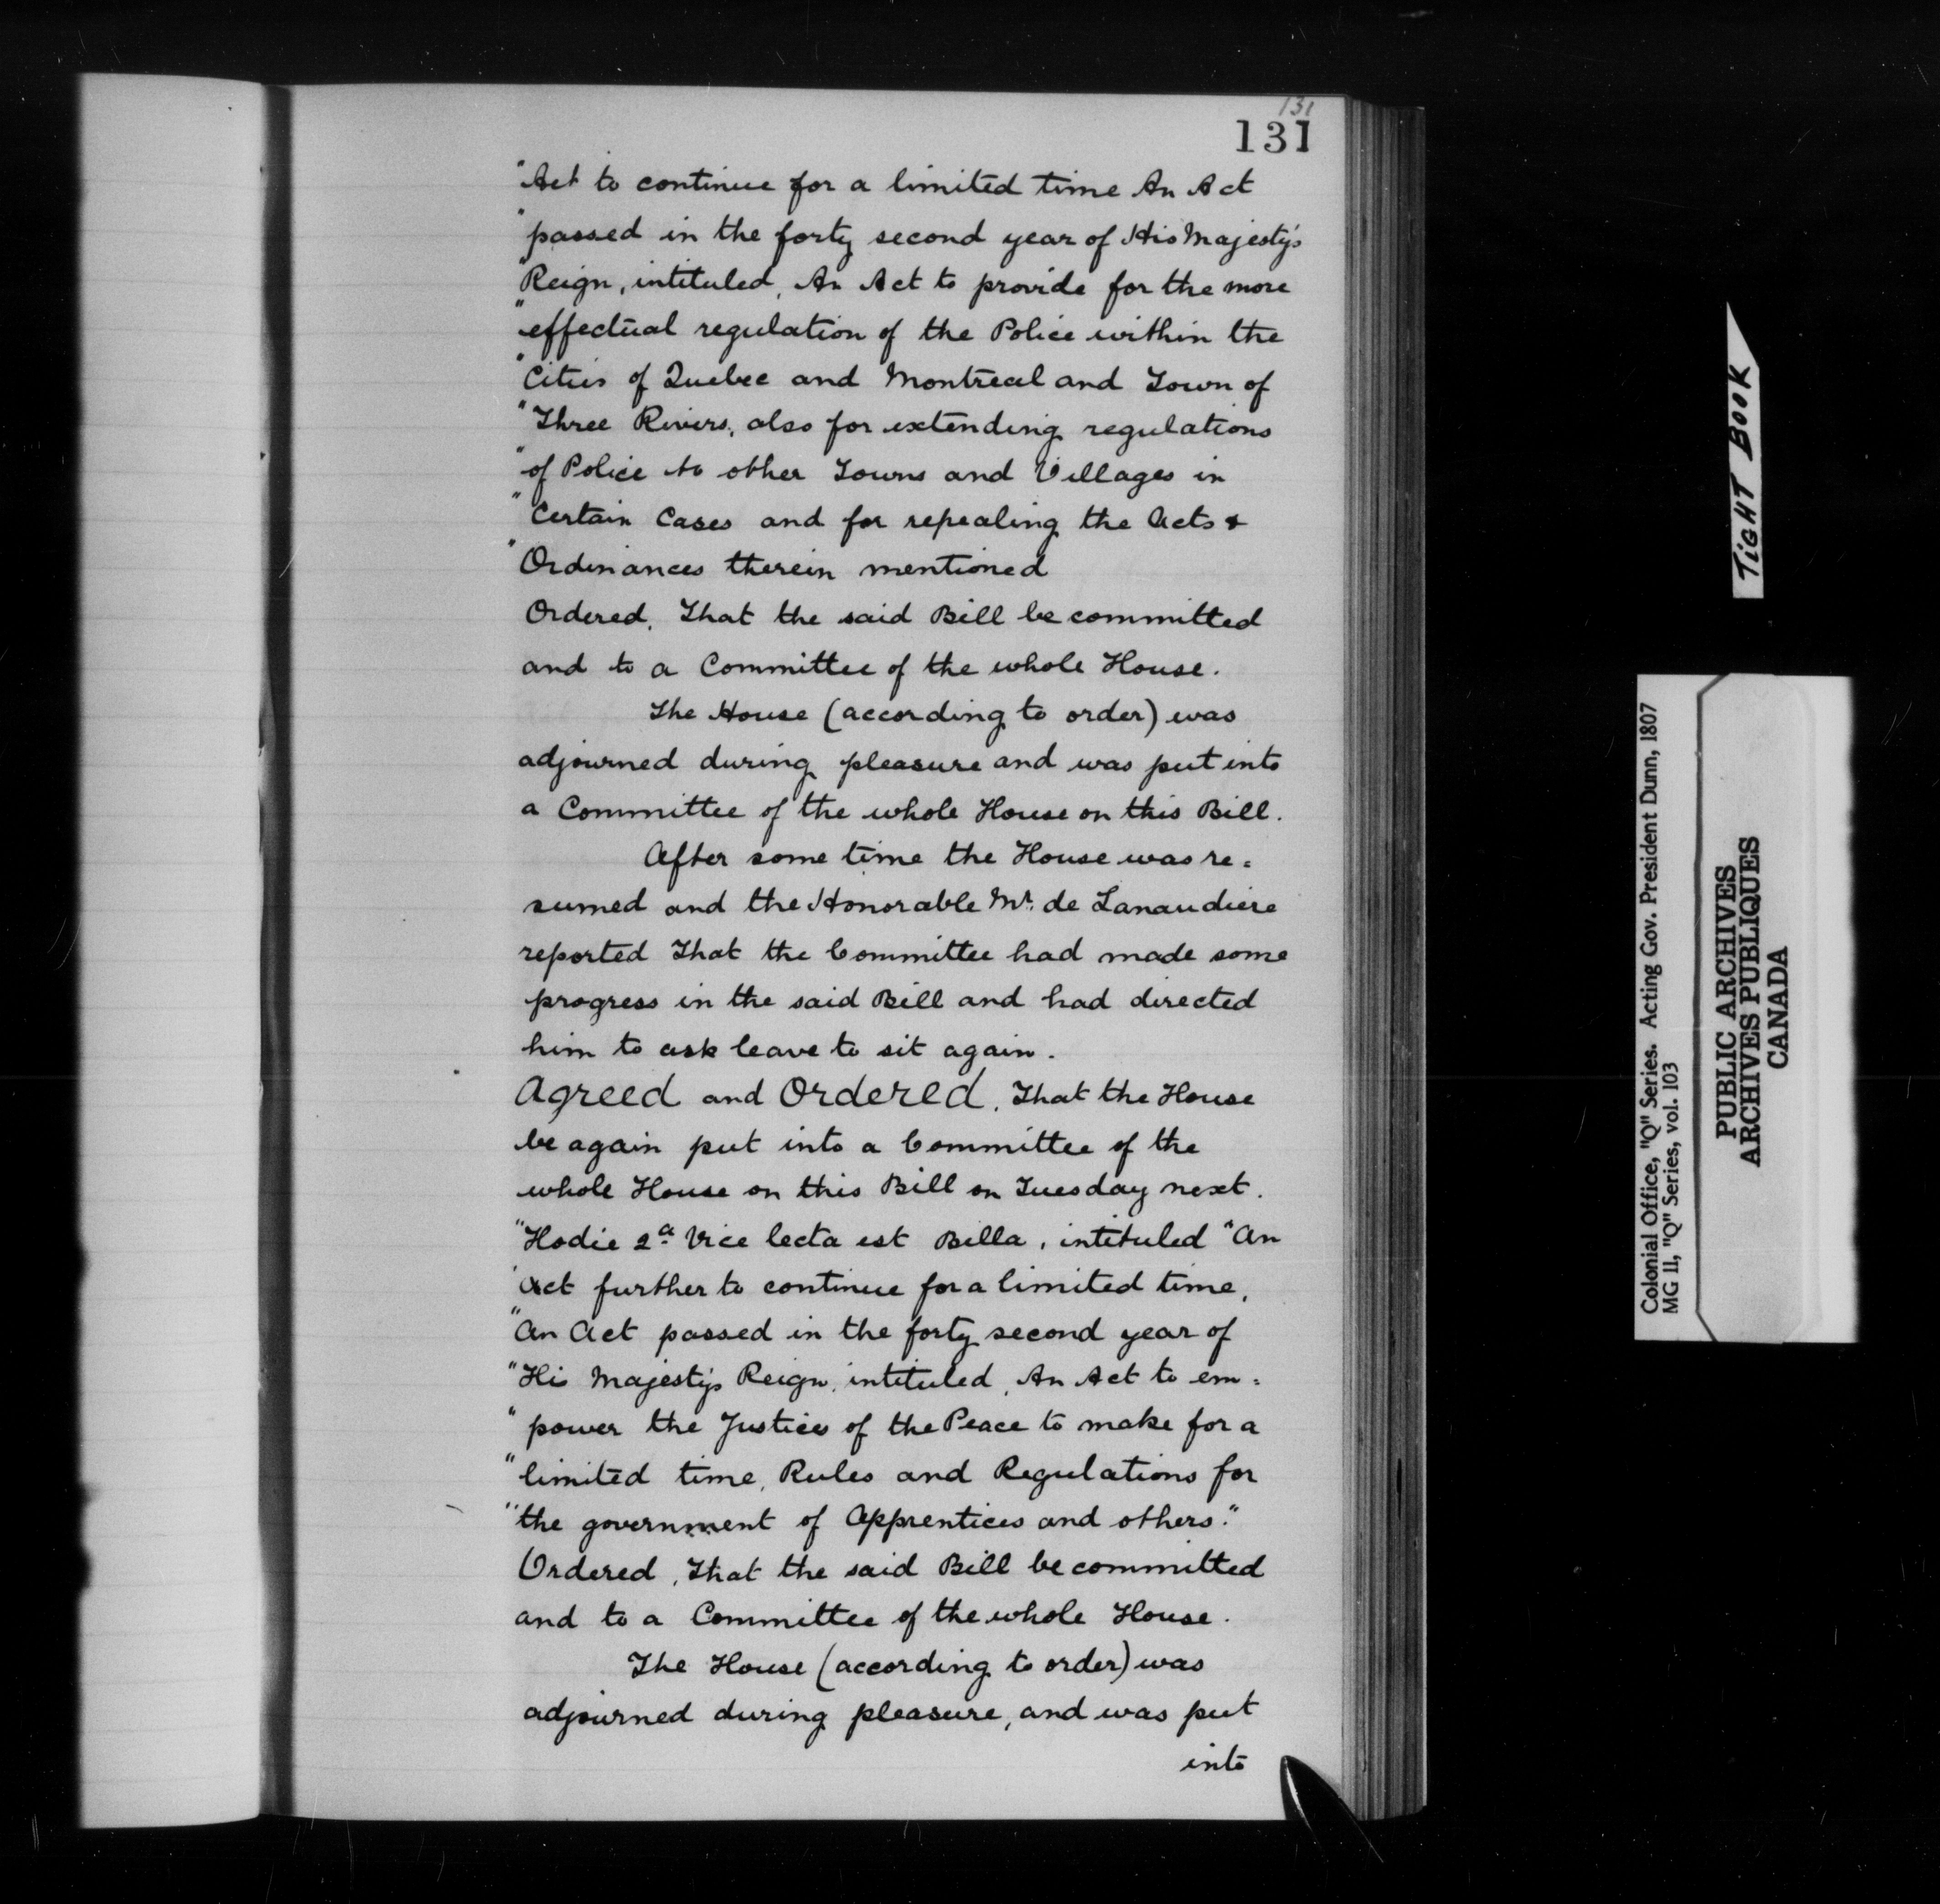 131
131
"Act to continue for a limited time An Act
"passed in the forty second year of His Majesty's
"Reign, intituled, An Act to provide for the more
"effectual regulation of the Police within the
"Cities of Quebec and Montreal and Town of
"Three Rivers, also for extending regulations
"of Police to other Towns and Villages in
"Certain Cases and for repealing the Acts &
"Ordinances therein mentioned
Ordered, That the said Bill be committed
and to a Committee of the whole House.
The House (according to order) was
adjourned during pleasure and was put into
a Committee of the whole House on this Bill.
After some time the House was re=
sumed and the Honorable Mr. de Lanaudiere
reported That the Committee had made some
progress in the said Bill and had directed
him to ask leave to sit again.
Agreed and Ordered, That the House
be again put into a Committee of the
whole House on this Bill on Tuesday next.
"Hodie 2a Vice lecta est Billa, intituled "An
'Act further to continue for a limited time,
"An Act passed in the forty second year of
"His Majesty's Reign, intituled, An Act to em=
"power the Justices of the Peace to make for a
"limited time, Rules and Regulations for
"the government of Apprentices and others."
Ordered, That the said Bill be committed
and to a Committee of the whole House.
The House (according to order) was
adjourned during pleasure, and was put
into
TIGHT BOOK
Colonial Office, "Q" Series. Acting Gov. President Dunn, 1807
MG 11, "Q" Series, vol. 103
PUBLIC ARCHIVES
ARCHIVES PUBLIQUES
CANADA